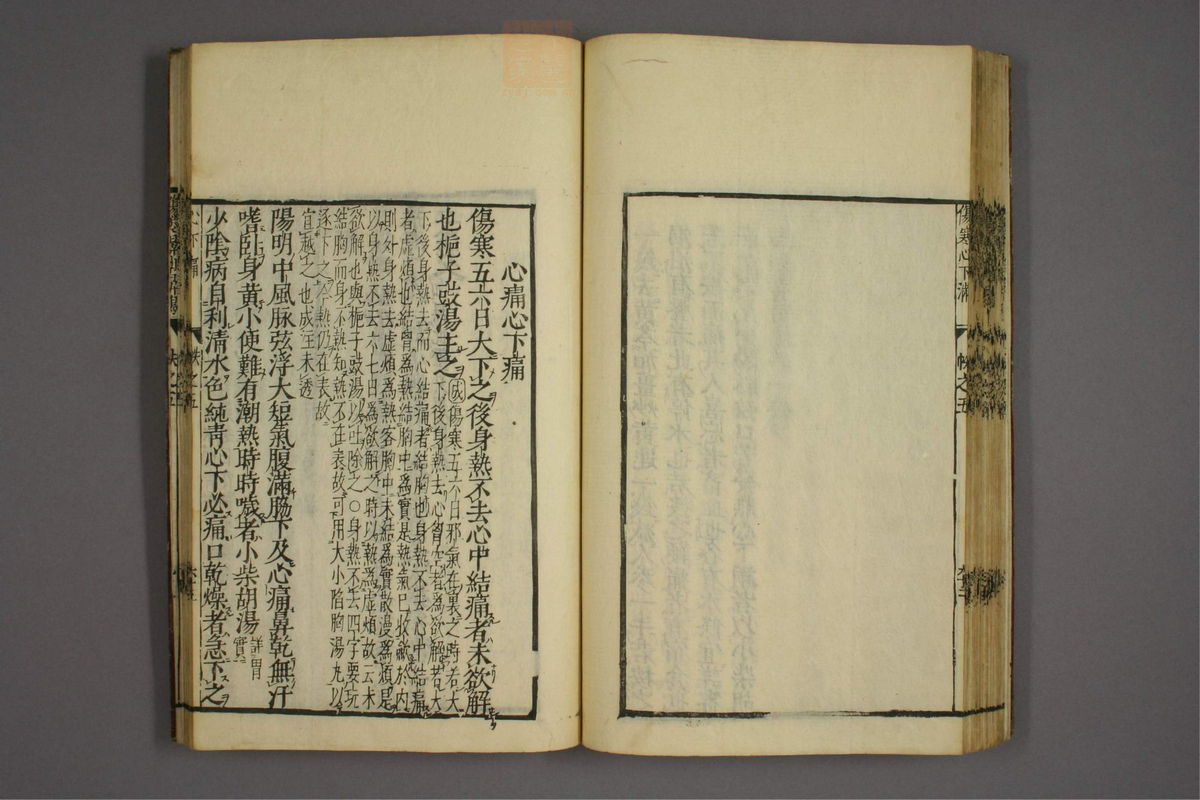 傷寒心下滿
帙之五
心痛心下痛
傷寒五六日大下之後身熱不去心中結痛者未欲解
也梔子豉湯主之
成傷寒五六日邪氣在裏之時若大
下後身熱去心胷空者為欲解若大
下後身熱去而心結痛者結胸也身熱不去心中結痛
者虛煩也結胷為熱結胸中為實是熱氣已收斂於內
則外身熱去虛煩為熱客胸中未結為實散漫為煩是
以身熱不去六七日為欲解之時以熱為虛煩故云未
欲解也與梔子豉湯以吐除之○身熱不去四字要玩
結胸而身不熱知熱不在表故可用大小陷胸湯丸以
逐下之今熱仍在表故
宣越之也成註未透
陽明中風脉弦浮大短氣腹滿脇下及心痛鼻乾無汗
嗜臥身黃小便難有潮熱時時噦者小柴胡湯
詳胃
實
少陰病自利清水色純青心下必痛口乾燥者急下之
帙之五